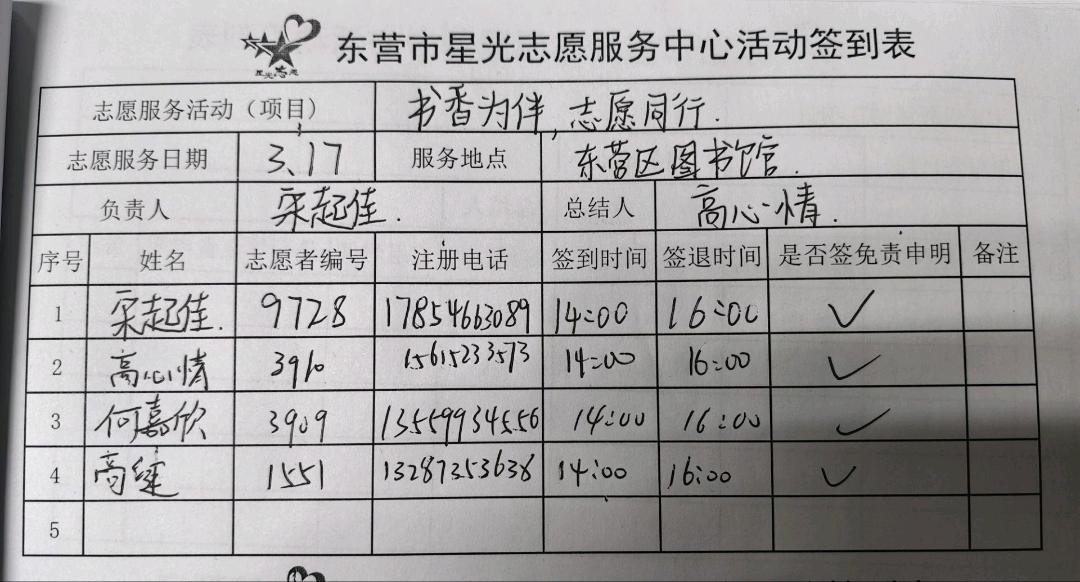 星光志愿
东营市星光志愿服务中心活动签到表
志愿服务活动（项目） 书香为伴,志愿同行.
志愿服务日期 3、17 服务地点 东营区图书馆.
负责人 宋起佳. 总结人 高心情.
序号 姓名 志愿者编号 注册电话 签到时间 签退时间 是否签免责申明 备注
1 宋起佳. 9728 17854663089 14:00 16:00 ✓
2 高心情 3910 15615233573 14:00 16:00 ✓
3 何嘉欣 3909 13559934556 14:00 16:00 ✓
4 高 1551 13287353638 14:00 16:00 ✓
5